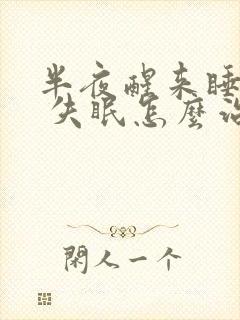 半夜醒来睡
失眠怎麼治
閑人一个